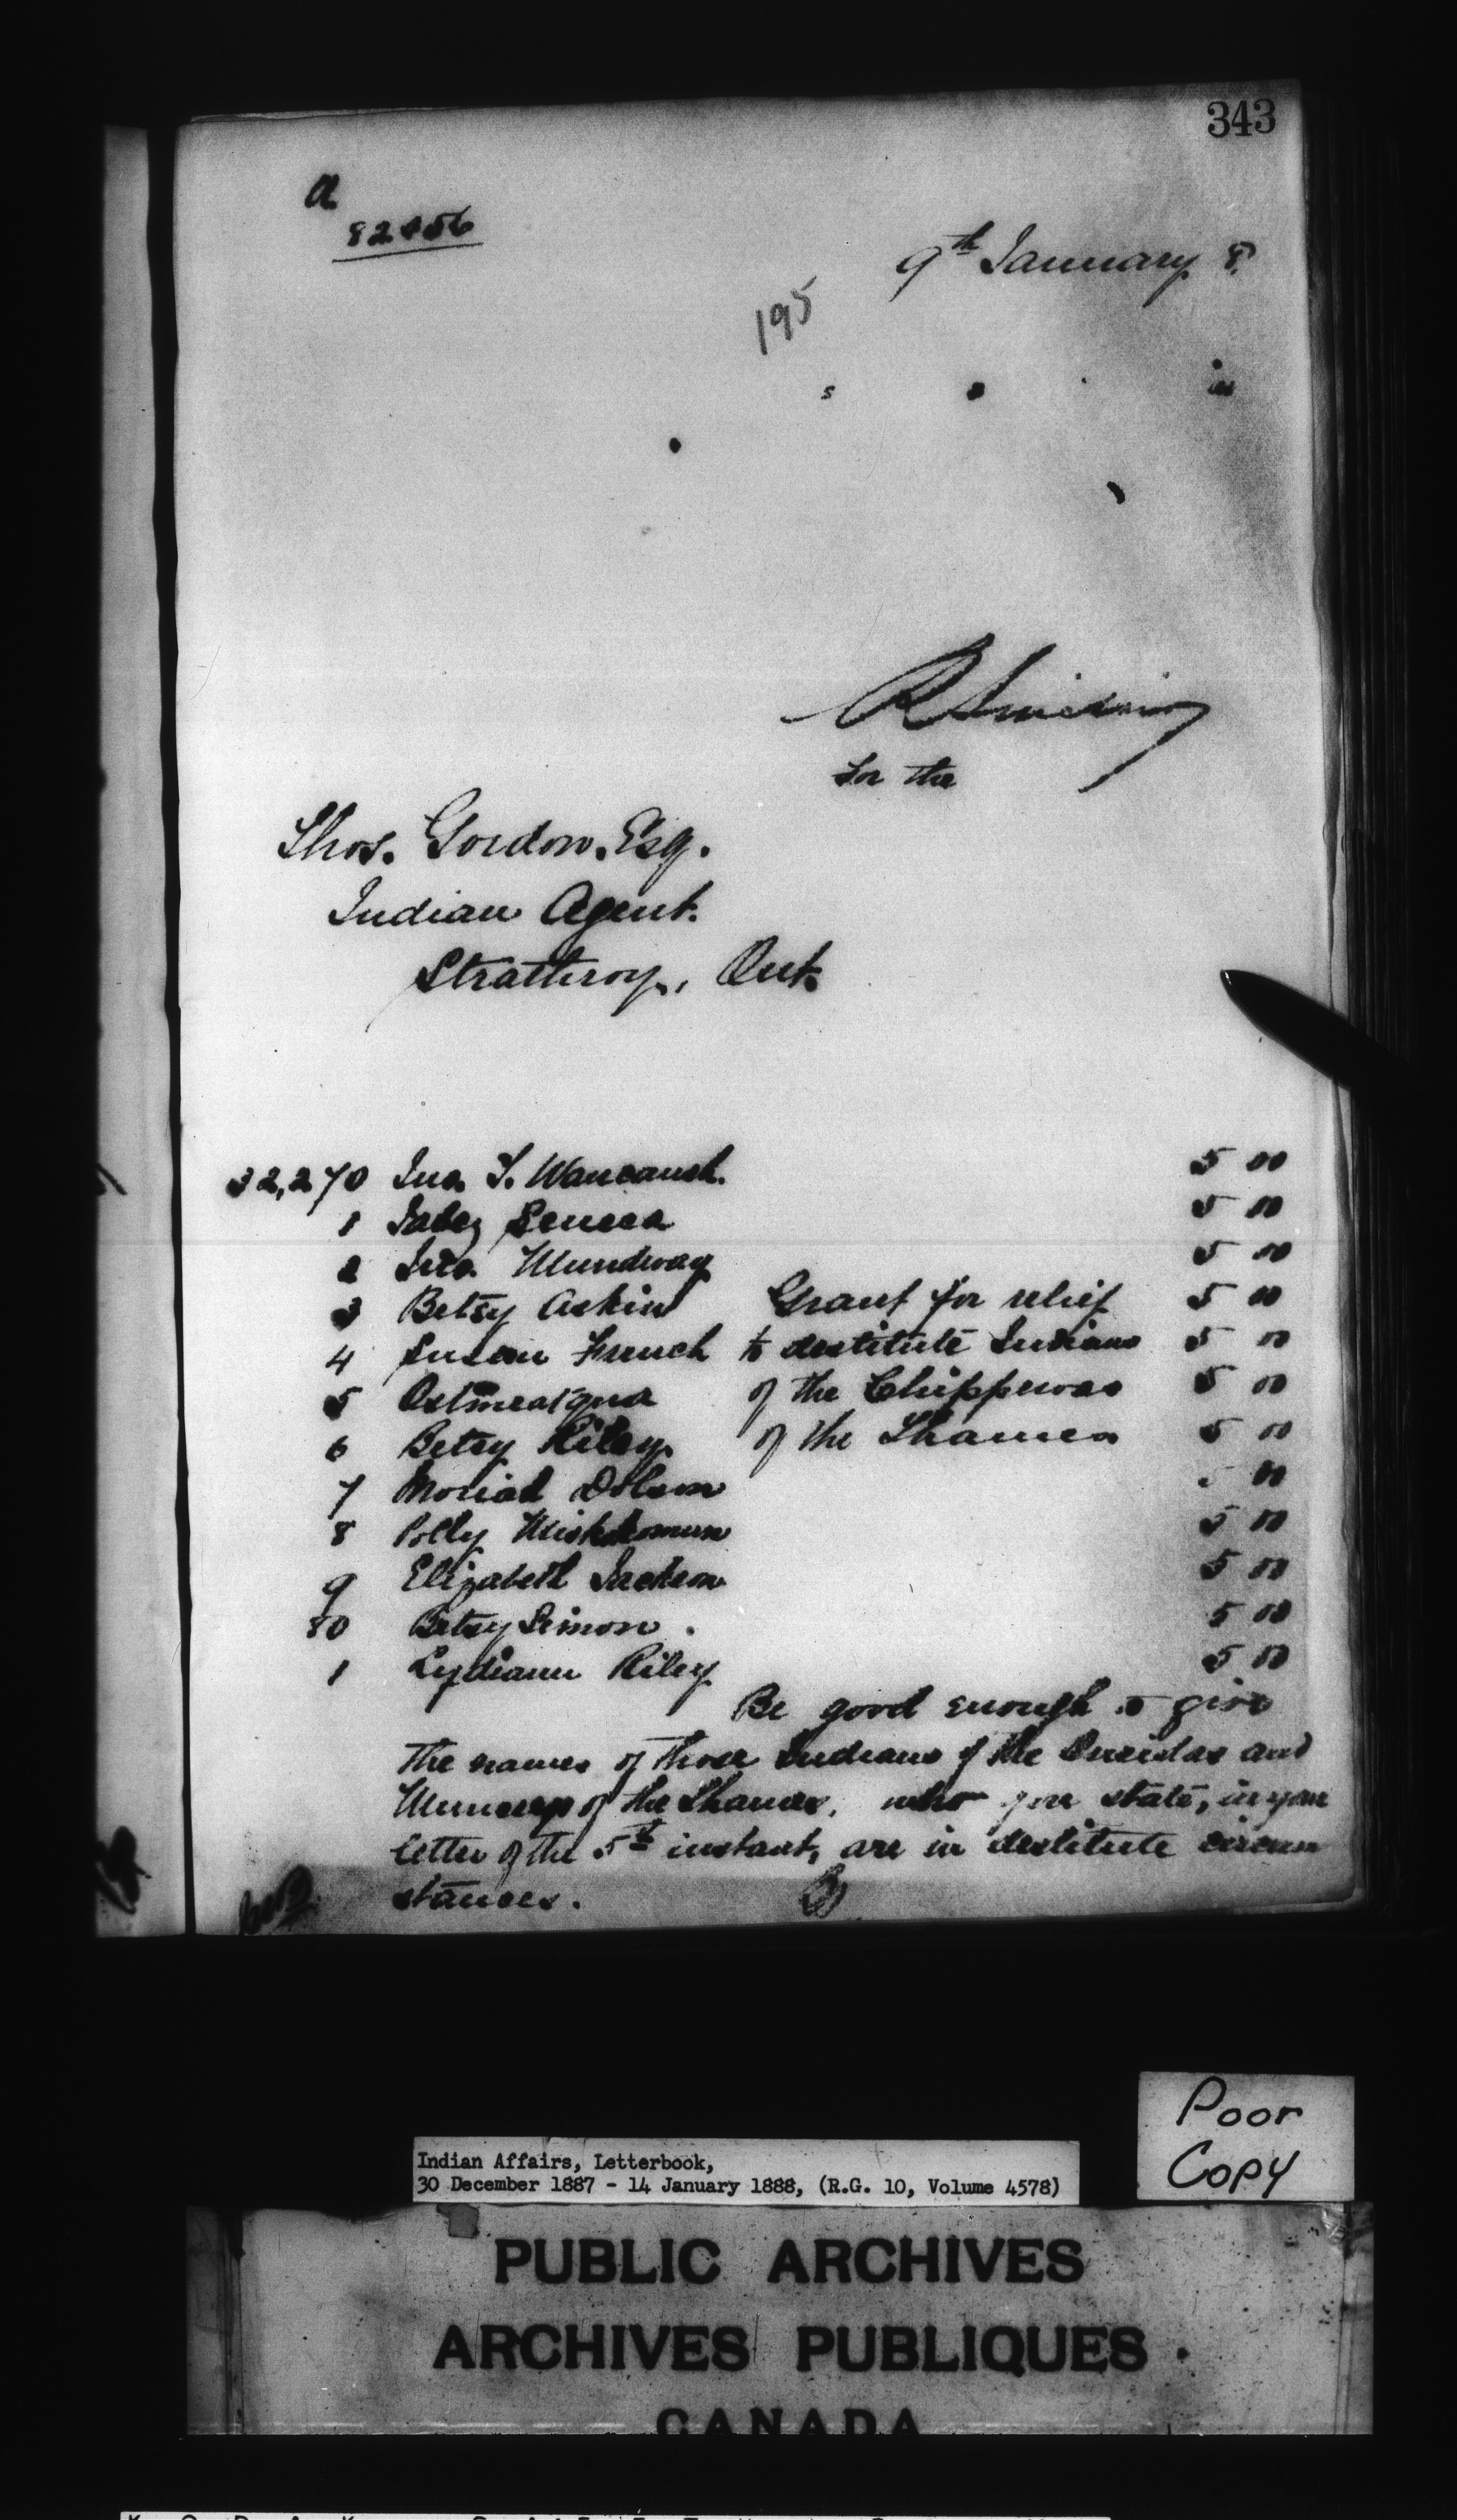 343
a
9th January 8.
195
for the
Thos. Gordon, Esq.
Indian Agent.
Strathroy, Ont.
32,270 Jno. T. 5 00
1 Jabez Seneca 5 00
2 Jno. Mundway 5 00
3 Betsy Askin Grant for relief 5 00
4 Susan French to destitute Indians 5 00
5 of the Chippewas 5 00
6 Betsy Riley of the Thames 5 00
7 Moriah Dolson 00
8 Polly 5 00
9 Elizabeth Jackson 5 00
80 Betsy Simon. 5 00
1 Lydiann Riley 5 00
Be good enough to give
the names of those Indians of the Oneidas and
Munceys of the Thames, who you state, in your
letter of the 5th instant, are in destitute circum
stances.
Poor
Copy
Indian Affairs, Letterbook,
30 December 1887 - 14 January 1888, (R.G. 10, Volume 4578)
PUBLIC ARCHIVES
ARCHIVES PUBLIQUES
CANADA